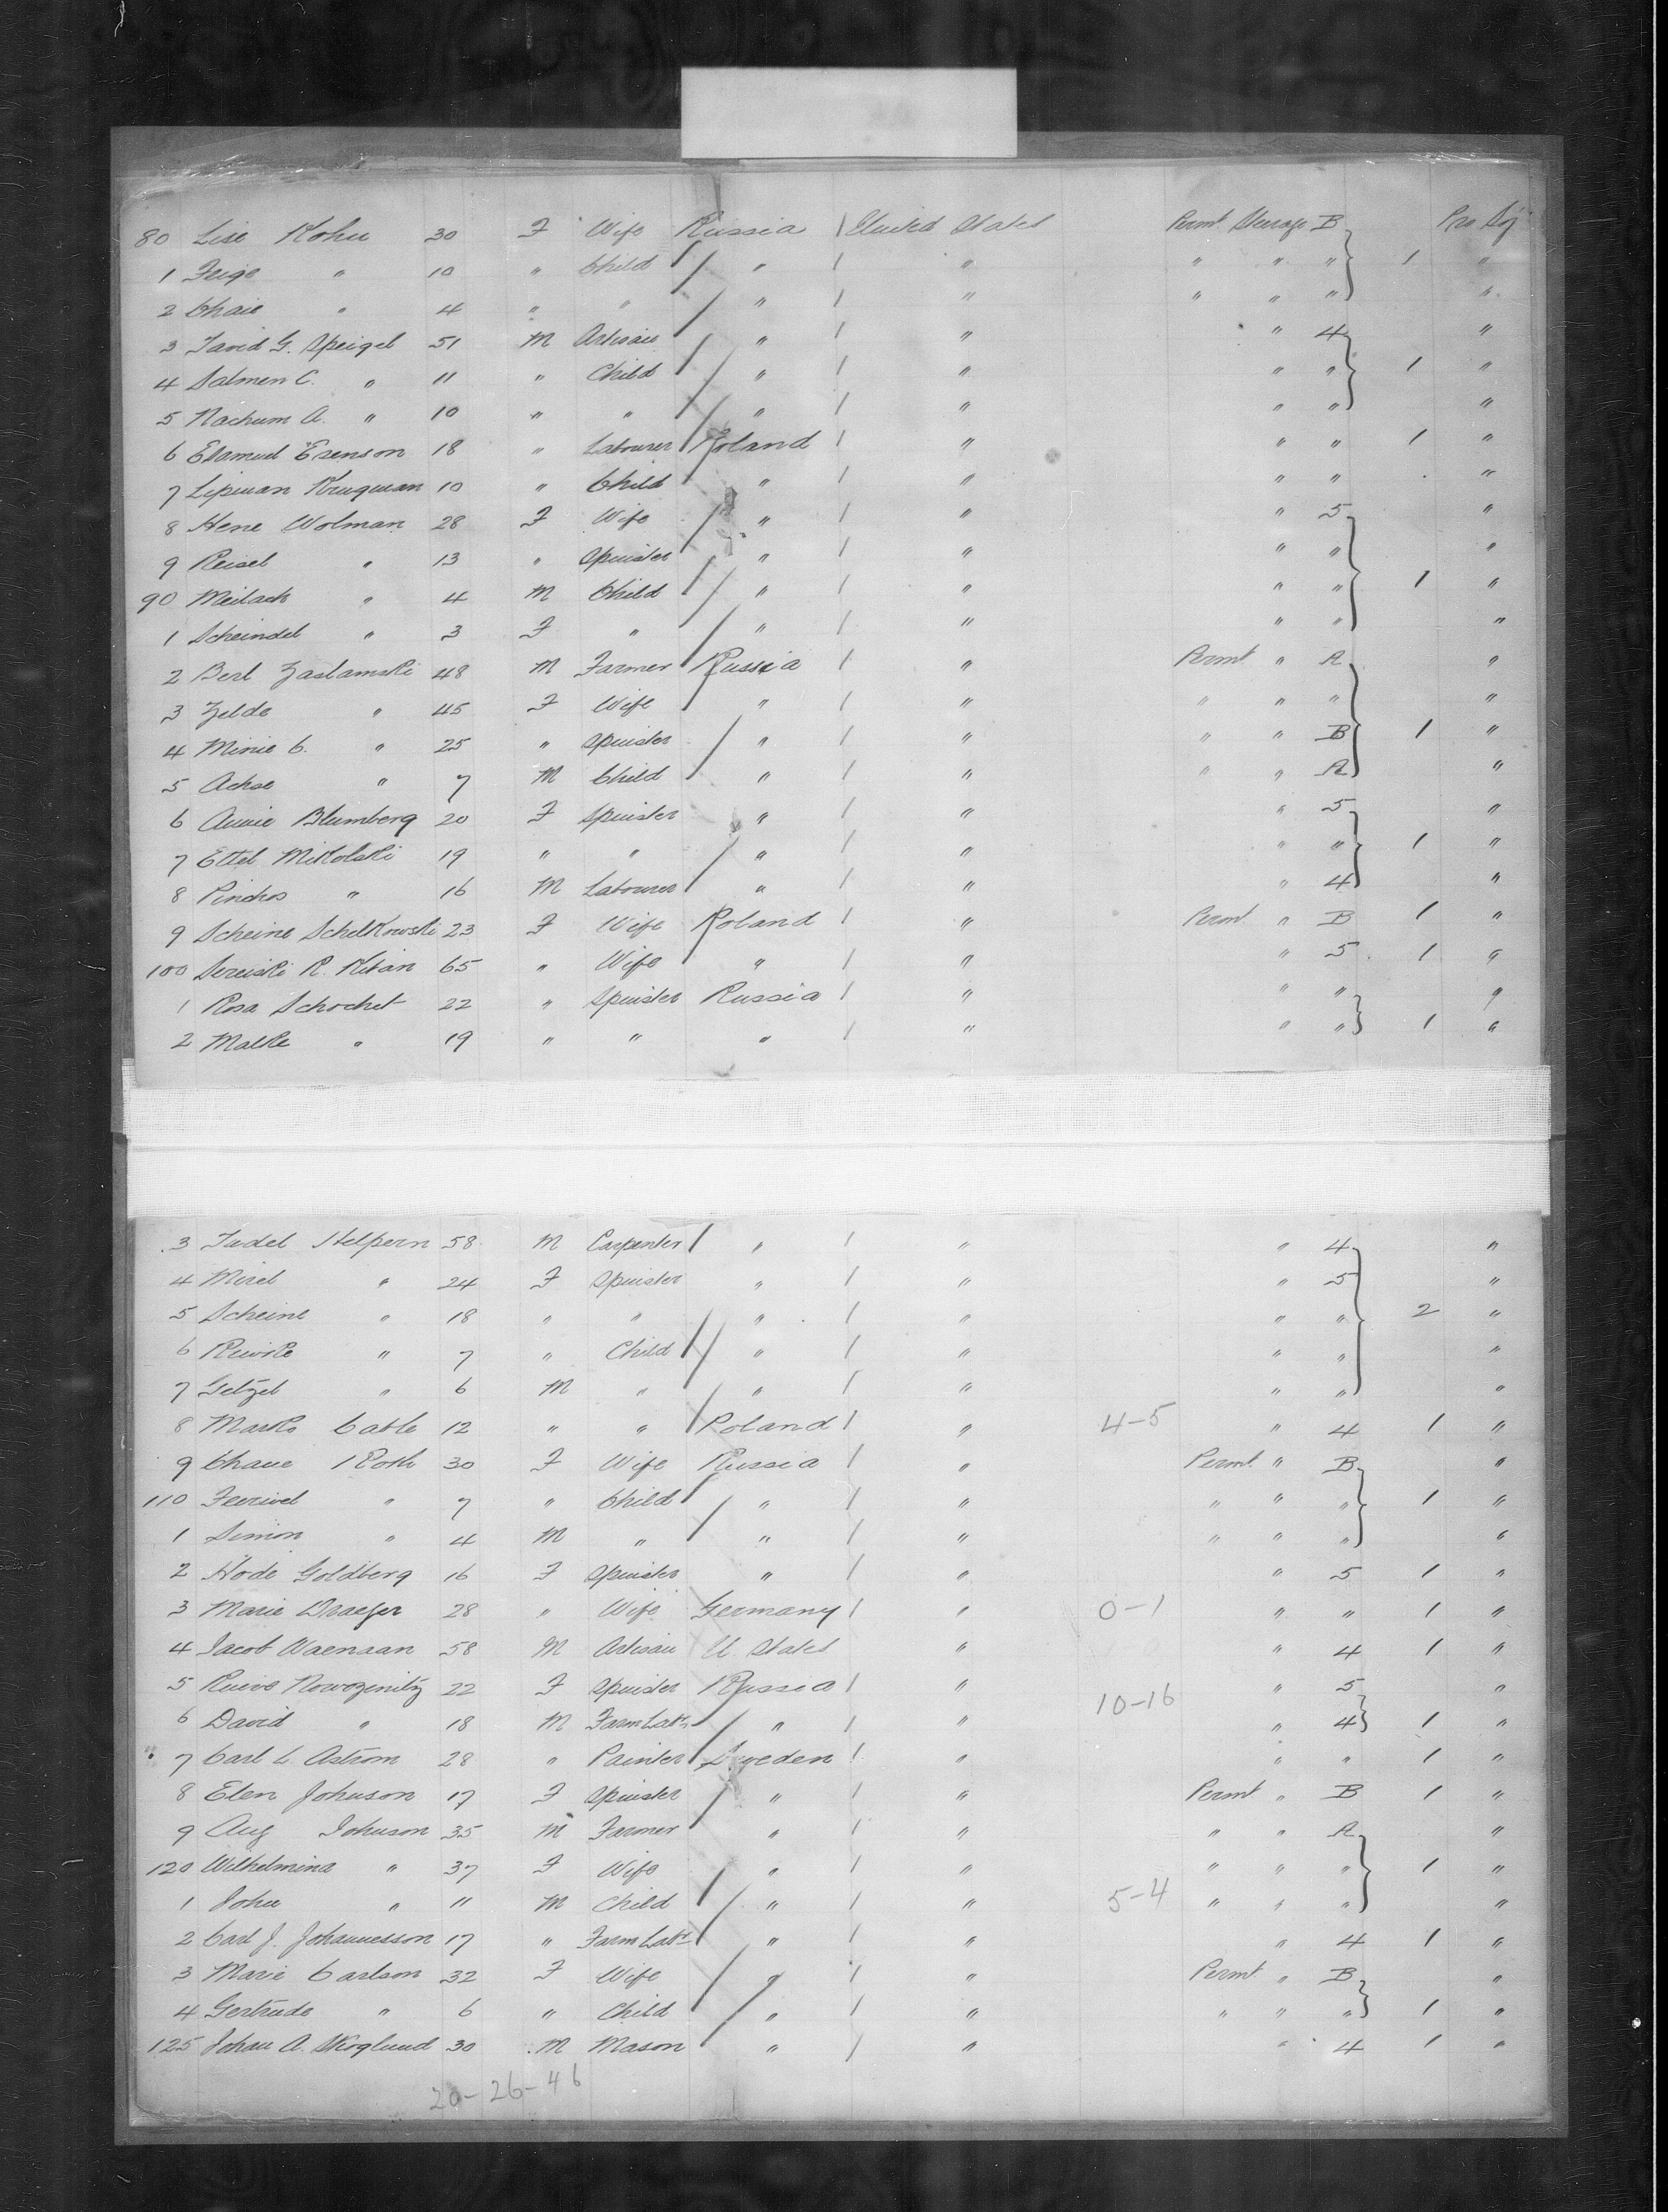 80 Lise Kohn 30 F Wife Russia / United States Permt Steerage B Pro Sj
1 Feige " 10 " Child " / " " " " 1 "
2 Chaie " 4 " " " / " " " " "
3 David G. Speigel 51 M Artisan " / " " 4 "
4 Salmen C. " 11 " Child " / " " " 1 "
5 Nachum A. " 10 " " " / " " " "
6 Elamud Esenson 18 " Labourer Poland / " " " 1 "
7 Lipman Krugman 10 " Child " / " " " "
8 Hene Wolman 28 F Wife " / " " 5 "
9 Reisel " 13 " Spinster " / " " " "
90 Meilach " 4 M Child " / " " " 1 "
1 Scheindel " 3 F " " / " " " "
2 Berl Zaslamski 48 M Farmer Russia / " Permt " A "
3 Zelde " 45 F Wife " / " " " " "
4 Minie C. " 25 " Spinster " / " " " B 1 "
5 Achse " 7 M Child " / " " " A "
6 Annie Blumberg 20 F Spinster " / " " 5 "
7 Ettel Mikolski 19 " " " / " " " 1 "
8 Pinchos " 16 M Labourer " / " " 4 "
9 Scheine Schelkowski 23 F Wife Poland / " Permt " B 1 "
100 Sereiski R. Kitain 65 " Wife " / " " 5 1 "
1 Rosa Schochet 22 " Spinster Russia / " " " "
2 Malke " 19 " " " / " " " 1 "
3 Judel Helpern 58 M Carpenter " / " " 4 "
4 Mirel " 24 F Spinster " / " " 5 "
5 Scheine " 18 " " " / " " " 2 "
6 Riwke " 7 " Child " / " " " "
7 Getzel " 6 M " " / " " " "
8 Marks Cable 12 " " Poland / " 4-5 " 4 1 "
9 Chaue Roth 30 F Wife Russia / " Permt " B "
110 Feerivel " 7 " Child " / " " " " 1 "
1 Simon " 4 M " " / " " " " "
2 Hode Goldberg 16 F Spinster " / " " 5 1 "
3 Marie Draeger 28 " Wife Germany / " 0-1 " " 1 "
4 Jacob Waensan 58 M Artisan U. States " " 4 1 "
5 Rieve Nowozenitz 22 F Spinster Russia / " " 5 "
6 David " 18 M Farm Labr " / " 10-16 " 4 1 "
7 Carl L Astrom 28 " Painter Sweden / " " " 1 "
8 Elen Johnson 17 F Spinster " / " Permt " B 1 "
9 Aug Johnson 35 M Farmer " / " " " A "
120 Wilhelmina " 37 F Wife " / " " " " 1 "
1 John " 11 M Child " / " 5-4 " " " "
2 Carl J. Johannesson 17 " Farm Labr " / " " 4 1 "
3 Marie Carlson 32 F Wife " / " Permt " B "
4 Gertrude " 6 " Child " / " " " " 1 "
125 Johan A. Skoglund 30 M Mason " / " " 4 1 "
20-26-46